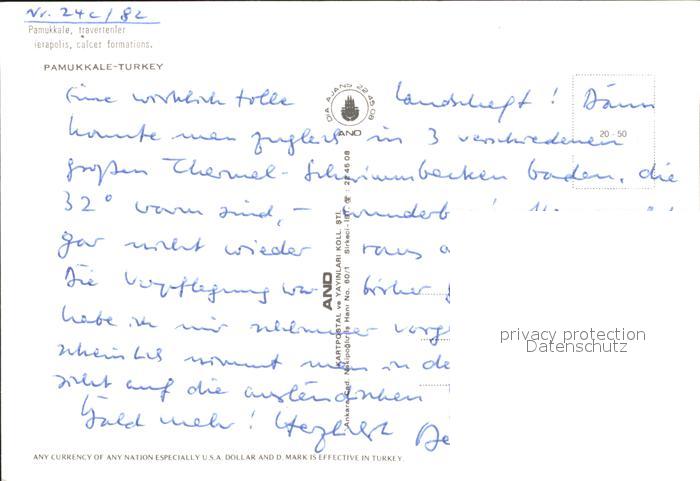 Nr. 24c/82
Pamukkale, travertenler
ierapolis, calcer formations.
PAMUKKALE-TURKEY
Eine wirklich tolle Landschaft! Dann
konnte man zugleich in 3 verschiedenen
großen Thermal-Schwimmbecken baden, die
32° warm sind, – wunderb
gar nicht wieder raus
Die Verpflegung war bisher
habe ich mir schlimmer vorg
scheinlich nimmt man in de
sicht auf die ausländischen
Bald mehr! Herzlichst
DIA AJANS 22 45 08
AND
20-50
AND
KARTPOSTAL ve YAYINLARI KOLL. ŞTİ.
Ankara Cad. Nakipoğlu İş Hanı No. 60/1 Sirkeci-IST. 22 45 08
privacy protection
Datenschutz
ANY CURRENCY OF ANY NATION ESPECIALLY U.S.A. DOLLAR AND D. MARK IS EFFECTIVE IN TURKEY.